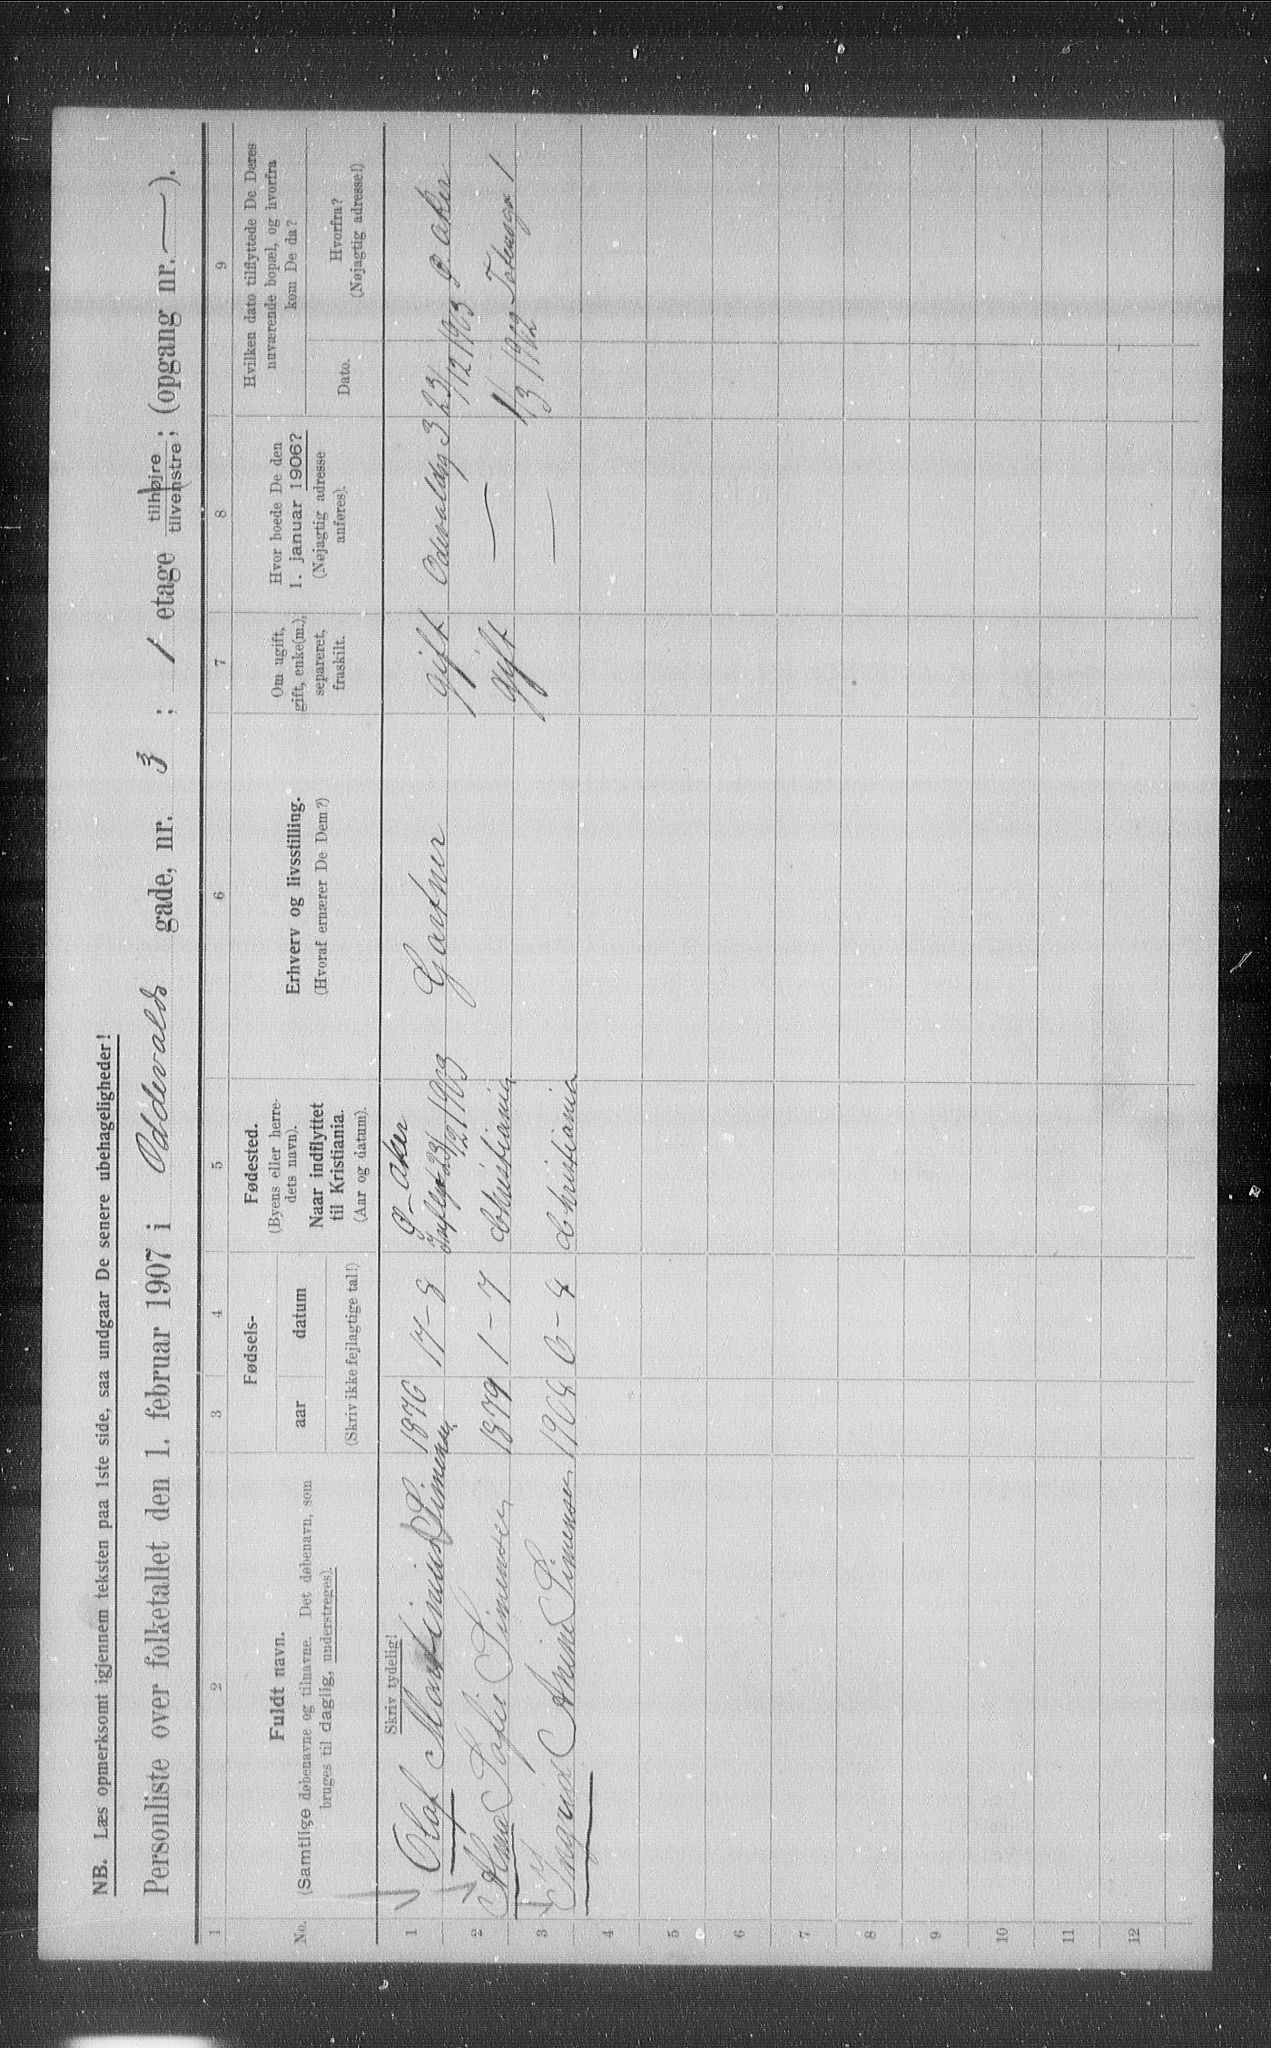 NB. Læs opmerksomt igjennem teksten paa 1ste side, saa undgaar De senere ubehageligheder!
Personliste over folketallet den 1. februar 1907 i Oddevalds gade, nr. 3 ; 1 etage tilhøjre tilvenstre; (opgang nr. — ).
1 2 3 4 5 6 7 8 9
No.
Fuldt navn.
(Samtlige døbenavne og tilnavne. Det døbenavn, som
bruges til daglig, understreges).
Fødsels-
aar datum
(Skriv ikke fejlagtige tal!)
Fødested.
(Byens eller herre-
dets navn).
Naar indflyttet
til Kristiania.
(Aar og datum).
Erhverv og livsstilling.
(Hvoraf ernærer De Dem?)
Om ugift,
gift, enke(m.),
separeret,
fraskilt.
Hvor boede De den
1. januar 1906?
(Nøjagtig adresse
anføres).
Hvilken dato tilflyttede De Deres
nuværende bopæl, og hvorfra
kom De da?
Dato.
Hvorfra?
(Nøjagtig adresse!)
Skriv tydelig!
1 Olaf Martinius Simensen 1876 17-8 Ø-Aker 23/12 1903 Gartner gift Odevaldsg 3 23/12 1903 Ø. Aker
2 Alma Sofie Simensen 1879 1-7 Christiania gift — 1/3 1902
3 Ingrid Simensen 6-4 Christiania —
4
5
6
7
8
9
10
11
12